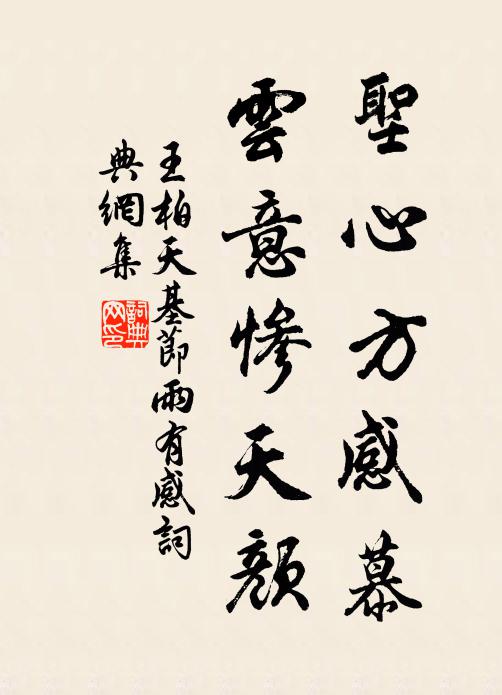 聖心方感慕
雲意慘天顏
王柏天基節雨有感詞
典網集
詞典
网印